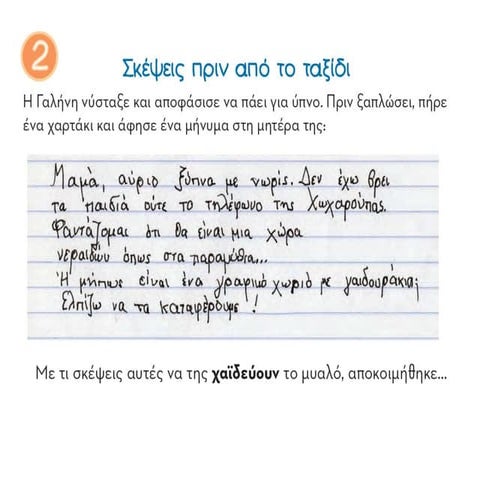 2
Σκέψεις πριν από το ταξίδι
Η Γαλήνη νύσταξε και αποφάσισε να πάει για ύπνο. Πριν ξαπλώσει, πήρε
ένα χαρτάκι και άφησε ένα μήνυμα στη μητέρα της:
Μαμά, αύριο ξύπνα με νωρίς. Δεν έχω βρει
τα παιδιά ούτε το τηλέφωνο της Χωχαρούπας.
Φαντάζομαι ότι θα είναι μια χώρα
νεραιδών όπως στα παραμύθια...
Ή μήπως είναι ένα γραφικό χωριό με γαϊδουράκια;
Ελπίζω να τα καταφέρουμε!
Με τι σκέψεις αυτές να της χαϊδεύουν το μυαλό, αποκοιμήθηκε...